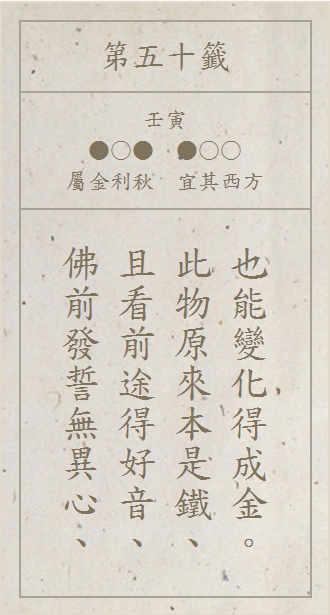 第五十籤
壬寅
●○● ●○○
屬金利秋 宜其西方
佛前發誓無異心、
且看前途得好音、
此物原來本是鐵、
也能變化得成金。